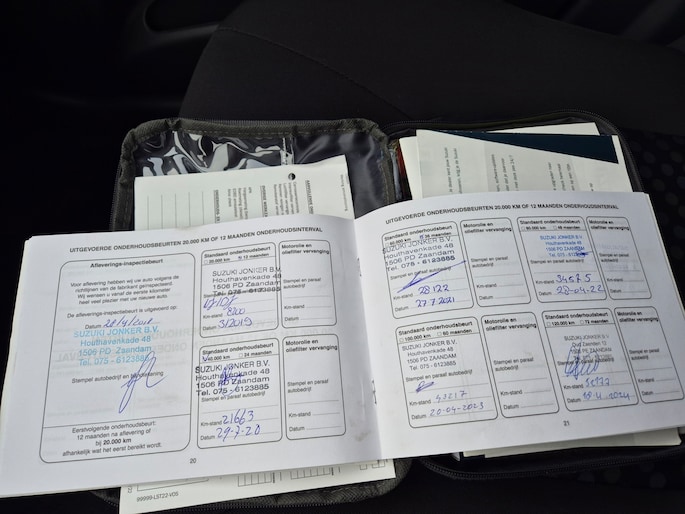 UITGEVOERDE ONDERHOUDSBEURTEN 20.000 KM OF 12 MAANDEN ONDERHOUDSINTERVAL
Afleverings-inspectiebeurt
Voor aflevering hebben wij uw auto volgens de
richtlijnen van de fabrikant geïnspecteerd.
Wij wensen u vanaf de eerste kilometer
heel veel plezier met uw nieuwe auto.
De afleverings-inspectiebeurt is uitgevoerd
Datum
SUZUKI JONKER B.V.
Houthavenkade 48
1506 PD Zaandam
Tel. 075 - 6123885
Stempel en paraaf autobedrijf
Eerstvolgende onderhoudsbeurt:
12 maanden na aflevering of
bij 20.000 km
afhankelijk wat het eerst bereikt wordt.
Standaard onderhoudsbeurt
12 maanden
SUZUKI JONKER B.V.
Houthavenkade 48
1506 PD Zaandam
Tel. 075 - 6123885
Km-stand 8200
Datum 3/2019
Motorolie en
oliefilter vervanging
Stempel en paraaf
autobedrijf
Km-stand
Datum
Standaard onderhoudsbeurt
24 maanden
SUZUKI JONKER B.V.
Houthavenkade 48
1506 PD Zaandam
Tel. 075 - 6123885
Stempel en paraaf autobedrijf
Km-stand 21663
Datum 29-7-20
Motorolie en
oliefilter vervanging
Stempel en paraaf
autobedrijf
Km-stand
Datum
20
UITGEVOERDE ONDERHOUDSBEURTEN 20.000 KM OF 12 MAANDEN ONDERHOUDSINTERVAL
Standaard onderhoudsbeurt
60.000 km 36 maanden
SUZUKI JONKER B.V.
Houthavenkade 48
1506 PD Zaandam
Tel. 075 - 6123885
Stempel en paraaf autobedrijf
Km-stand 28122
Datum 27-7-2021
Motorolie en
oliefilter vervanging
Stempel en paraaf
autobedrijf
Km-stand
Datum
Standaard onderhoudsbeurt
80.000 km 48 maanden
SUZUKI JONKER B.V.
Houthavenkade 48
1506 PD ZAANDAM
Stempel en paraaf autobedrijf
Km-stand
Datum 28-04-22
Motorolie en
oliefilter vervanging
Stempel en paraaf
autobedrijf
Km-stand
Datum
Standaard onderhoudsbeurt
100.000 km 60 maanden
SUZUKI JONKER B.V.
Houthavenkade 48
1506 PD ZAANDAM
Tel. 075 - 6123885
Stempel en paraaf autobedrijf
Km-stand 43217
Datum 20-04-2023
Motorolie en
oliefilter vervanging
Stempel en paraaf
autobedrijf
Km-stand
Datum
Standaard onderhoudsbeurt
120.000 km 72 maanden
SUZUKI JONKER B.V.
Houthavenkade 48
1506 PD ZAANDAM
Stempel en paraaf autobedrijf
Km-stand
Datum
Motorolie en
oliefilter vervanging
Stempel en paraaf
autobedrijf
Km-stand
Datum
21